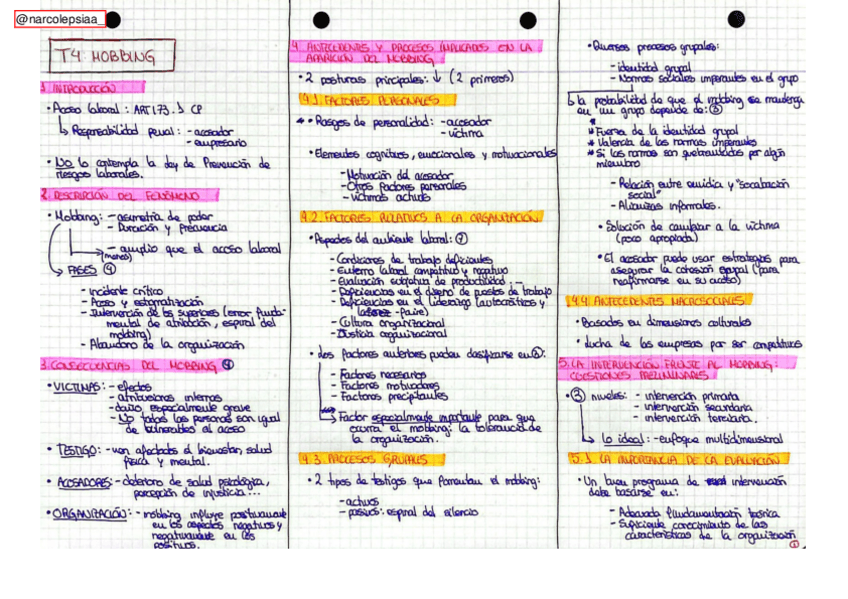 @narcolepsiaa_
T4 MOBBING
1. INTRODUCCIÓN
• Acoso laboral: ART 173.1 CP
↳ Responsabilidad penal: - acosador
- empresario
• NO lo contempla la ley de Prevención de
riesgos laborales.
2. DESCRIPCIÓN DEL FENÓMENO
• Mobbing: - asimetría de poder
- Duración y frecuencia
- amplio que el acoso laboral
(menos)
→ FASES ④
- incidente crítico
- Acoso y estigmatización
- Intervención de los superiores (error funda-
mental de atribución, espiral del
mobbing)
- Abandono de la organización
3. CONSECUENCIAS DEL MOBBING ④
• VICTIMAS: - efectos
- atribuciones internas
- daño especialmente grave
- No todas las personas son igual
de vulnerables al acoso
• TESTIGO: - ven afectados el bienestar, salud
física y mental.
• ACOSADORES: - deterioro de salud psicológica,
percepción de injusticia...
• ORGANIZACIÓN: - mobbing influye positivamente
en los aspectos negativos y
negativamente en los
positivos.
4. ANTECEDENTES Y PROCESOS IMPLICADOS EN LA
APARICIÓN DEL MOBBING
• 2 posturas principales: ↓ (2 primeros)
4.1. FACTORES PERSONALES
• Rasgos de personalidad: - acosador
- víctima
• Elementos cognitivos, emocionales y motivacionales
- Motivación del acosador
- Otros factores personales
- víctimas activas
4.2. FACTORES RELATIVOS A LA ORGANIZACIÓN
• Aspectos del ambiente laboral: ⑦
- Condiciones de trabajo deficientes
- Entorno laboral competitivo y negativo
- Evaluación subjetiva de productividad
- Deficiencias en el diseño de puestos de trabajo
- Deficiencias en el liderazgo (autocráticos y
laissez-faire)
- Cultura organizacional
- Justicia organizacional
• Los factores anteriores pueden clasificarse en ③:
- Factores necesarios
- Factores motivadores
- Factores precipitantes
→ Factor especialmente importante para que
ocurra el mobbing: la tolerancia de
la organización.
4.3. PROCESOS GRUPALES
• 2 tipos de testigos que fomentan el mobbing:
- activos
- pasivos: espiral del silencio
• Diversos procesos grupales:
- identidad grupal
- Normas sociales imperantes en el grupo
↳ la probabilidad de que el mobbing se mantenga
en un grupo depende de: ③
* Fuerza de la identidad grupal
* Valencia de las normas imperantes
* Si las normas son quebrantadas por algún
miembro
- Relación entre envidia y "socavación
social"
- Alianzas informales.
• Solución de cambiar a la víctima
(poco apropiada)
• El acosador puede usar estrategias para
asegurar la cohesión grupal (para
reafirmarse en su acoso)
4.4 ANTECEDENTES MACROSOCIALES
• Basados en dimensiones culturales
• Lucha de las empresas por ser competitivas
5. LA INTERVENCIÓN FRENTE AL MOBBING:
CUESTIONES PRELIMINARES
• ③ niveles: - intervención primaria
- intervención secundaria
- intervención terciaria.
↳ Lo ideal: - enfoque multidimensional
5.1 LA IMPORTANCIA DE LA EVALUACIÓN
• Un buen programa de intervención
debe basarse en:
- Adecuada fundamentación teórica
- Suficiente conocimiento de las
características de la organización
①